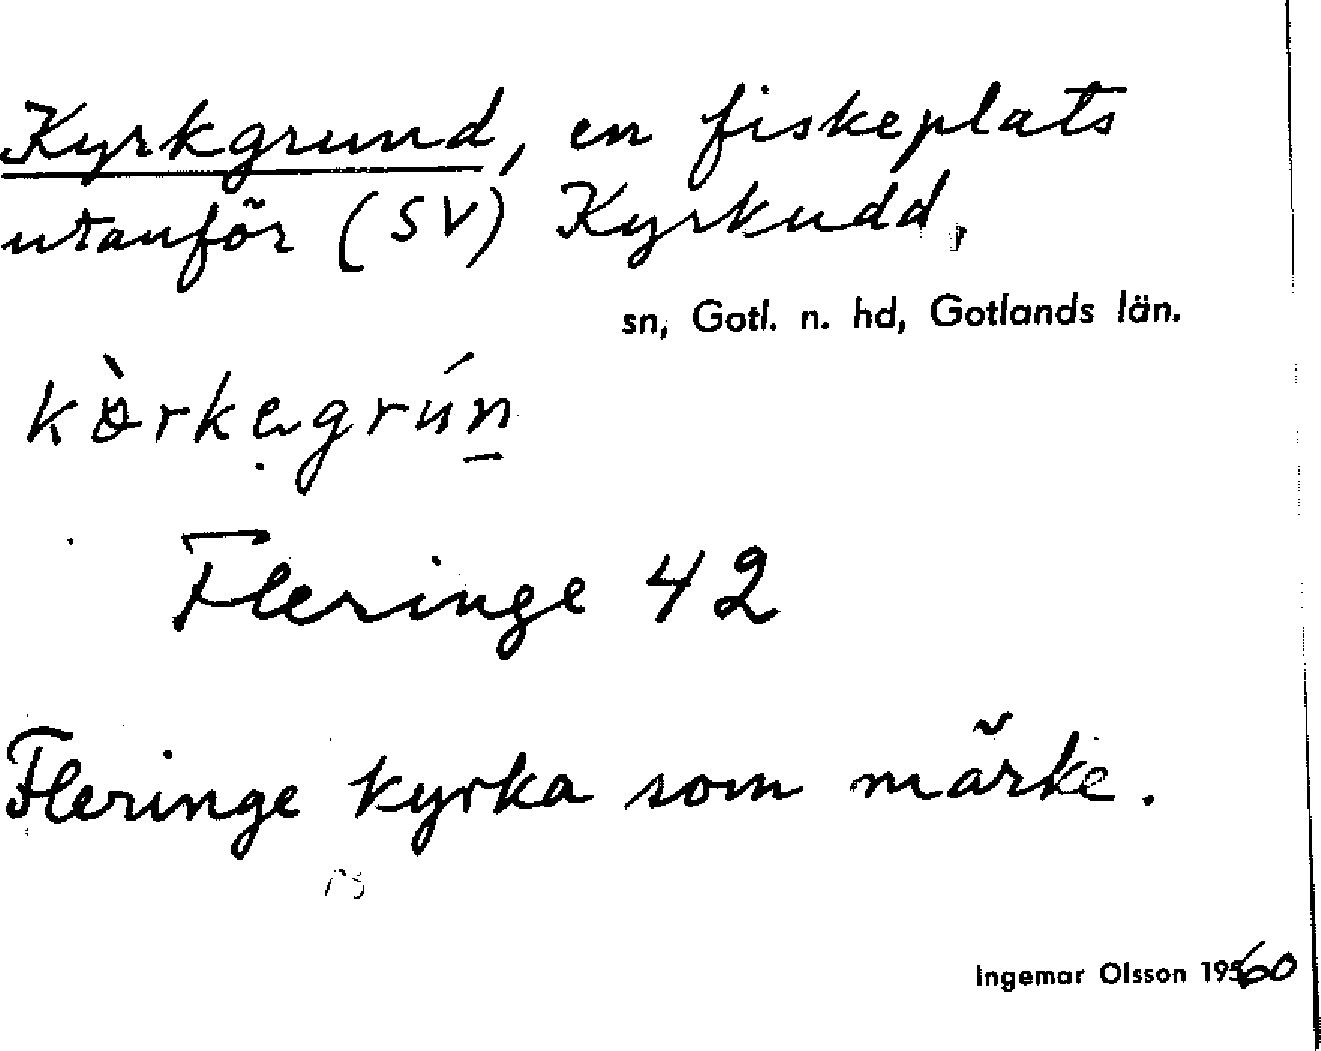 Kyrkgrund, en fiskeplats
utanför (SV) Kyrkudd,
sn, Gotl. n. hd, Gotlands län.
Fleringe 42
Fleringe kyrka som märke.
Ingemar Olsson 1960